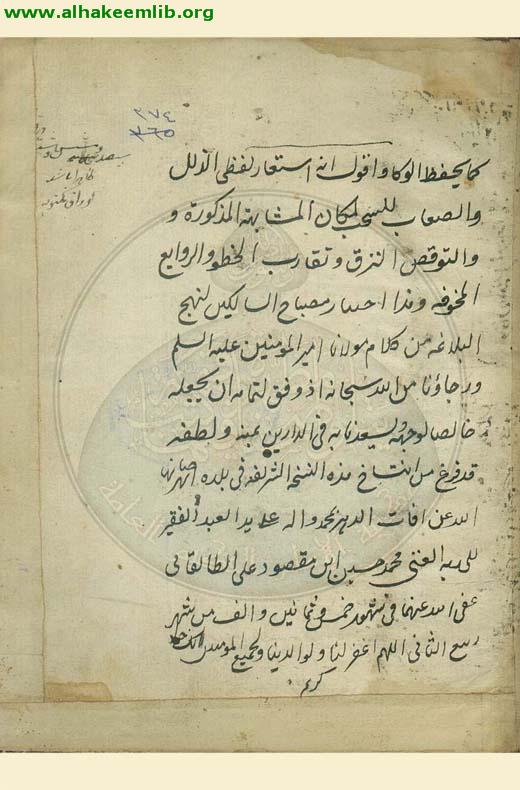 www.alhakeemlib.org
٣٧٤
كما يحفظ الوكا واقول انه استعار لفظى الذلل
والصعاب للسحب لمكان المشابهة المذكورة و
والتوقص النزق وتقارب الخطو والروايع
المخوفه وهذا اختيار مصباح السالكين لنهج
البلاغه من كلام مولانا امير المومنين عليه السلم
ورجاؤنا من الله سبحانه اذ وفق لتمامه ان يجعله
خالصا لوجهه ويسعدنا به فى الدارين بمنه ولطفه
قد فرغ من انتساخ هذه النسخة الشريفه فى بلده اصفهان صانها
الله عن افات الدهر بمحمد واله على يد العبد الفقير
الى الله الغنى محمد حسين ابن مقصود على الطالقانى
عفى الله عنهما فى شهور خمس وثمانين والف من شهر
ربيع الثانى اللهم اغفر لنا ولوالدينا ولجميع المومنين انك جواد
كريم